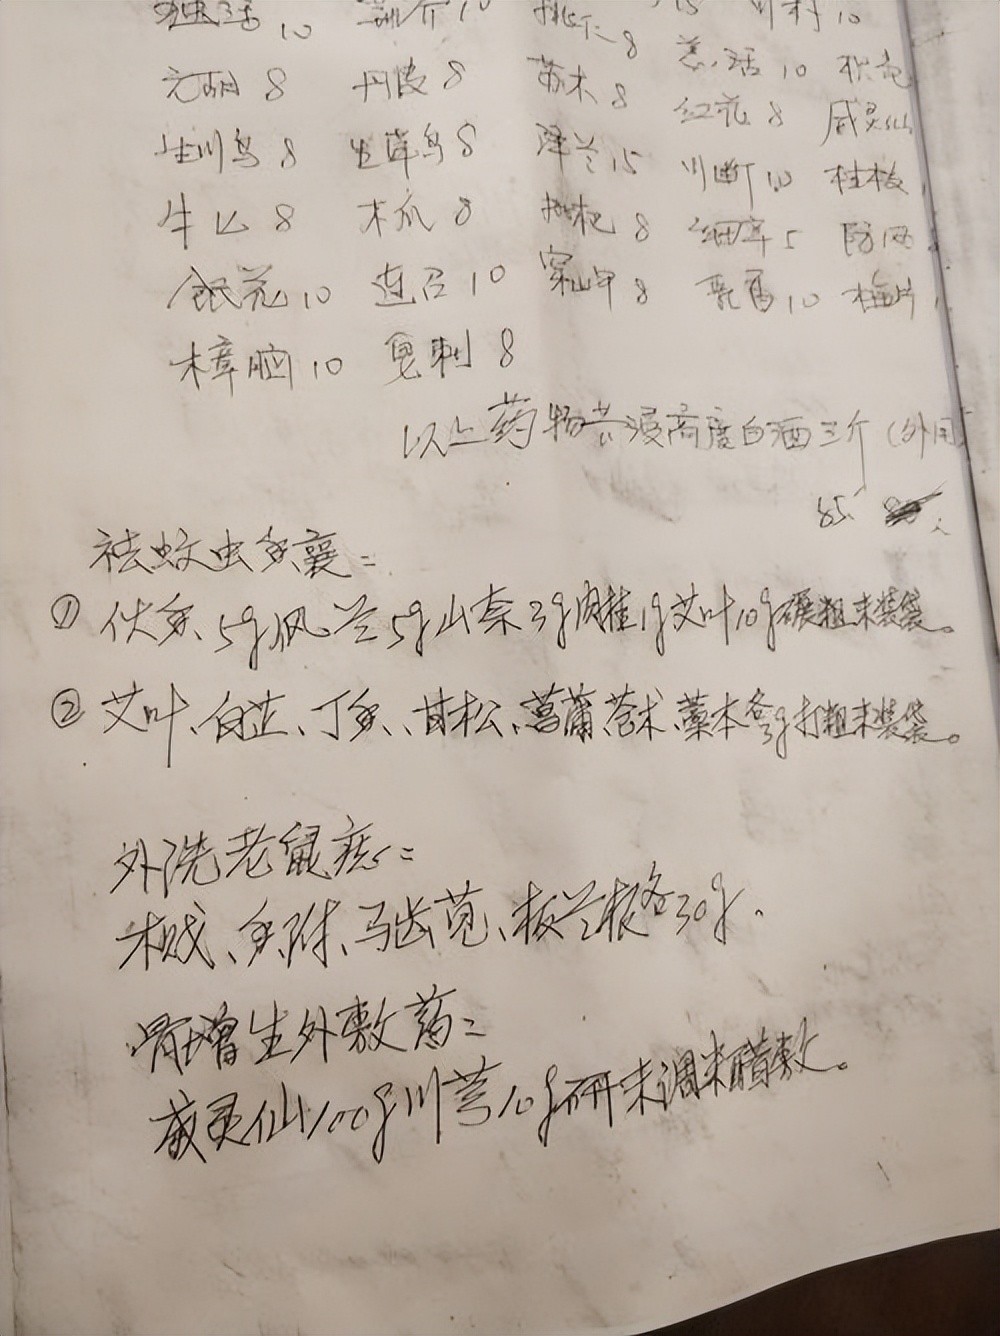 独活 10 10 桃仁 8 15 10
元胡 8 丹皮 8 苏木 8 羌活 10 枳壳
生川乌 8 生草乌 8 泽兰 15 红花 8 威灵仙
牛七 8 木瓜 8 枇杷 8 川断 10 桂枝
银花 10 连召 10 穿山甲 8 细辛 5 防风
樟脑 10 皂刺 8 10 梅片
以上药物共浸高度白酒三斤（外用
85
祛蚊虫香囊：
① 伏香 5g 佩兰 5g 山柰 3g 肉桂 1g 艾叶 10g 碾粗末装袋。
② 艾叶、白芷、丁香、甘松、菖蒲、苍术、藁本各3g打粗末装袋。
外洗老鼠疣：
木贼、香附、马齿苋、板兰根各30g.
骨增生外敷药：
威灵仙100g川芎10g研末调米醋敷。